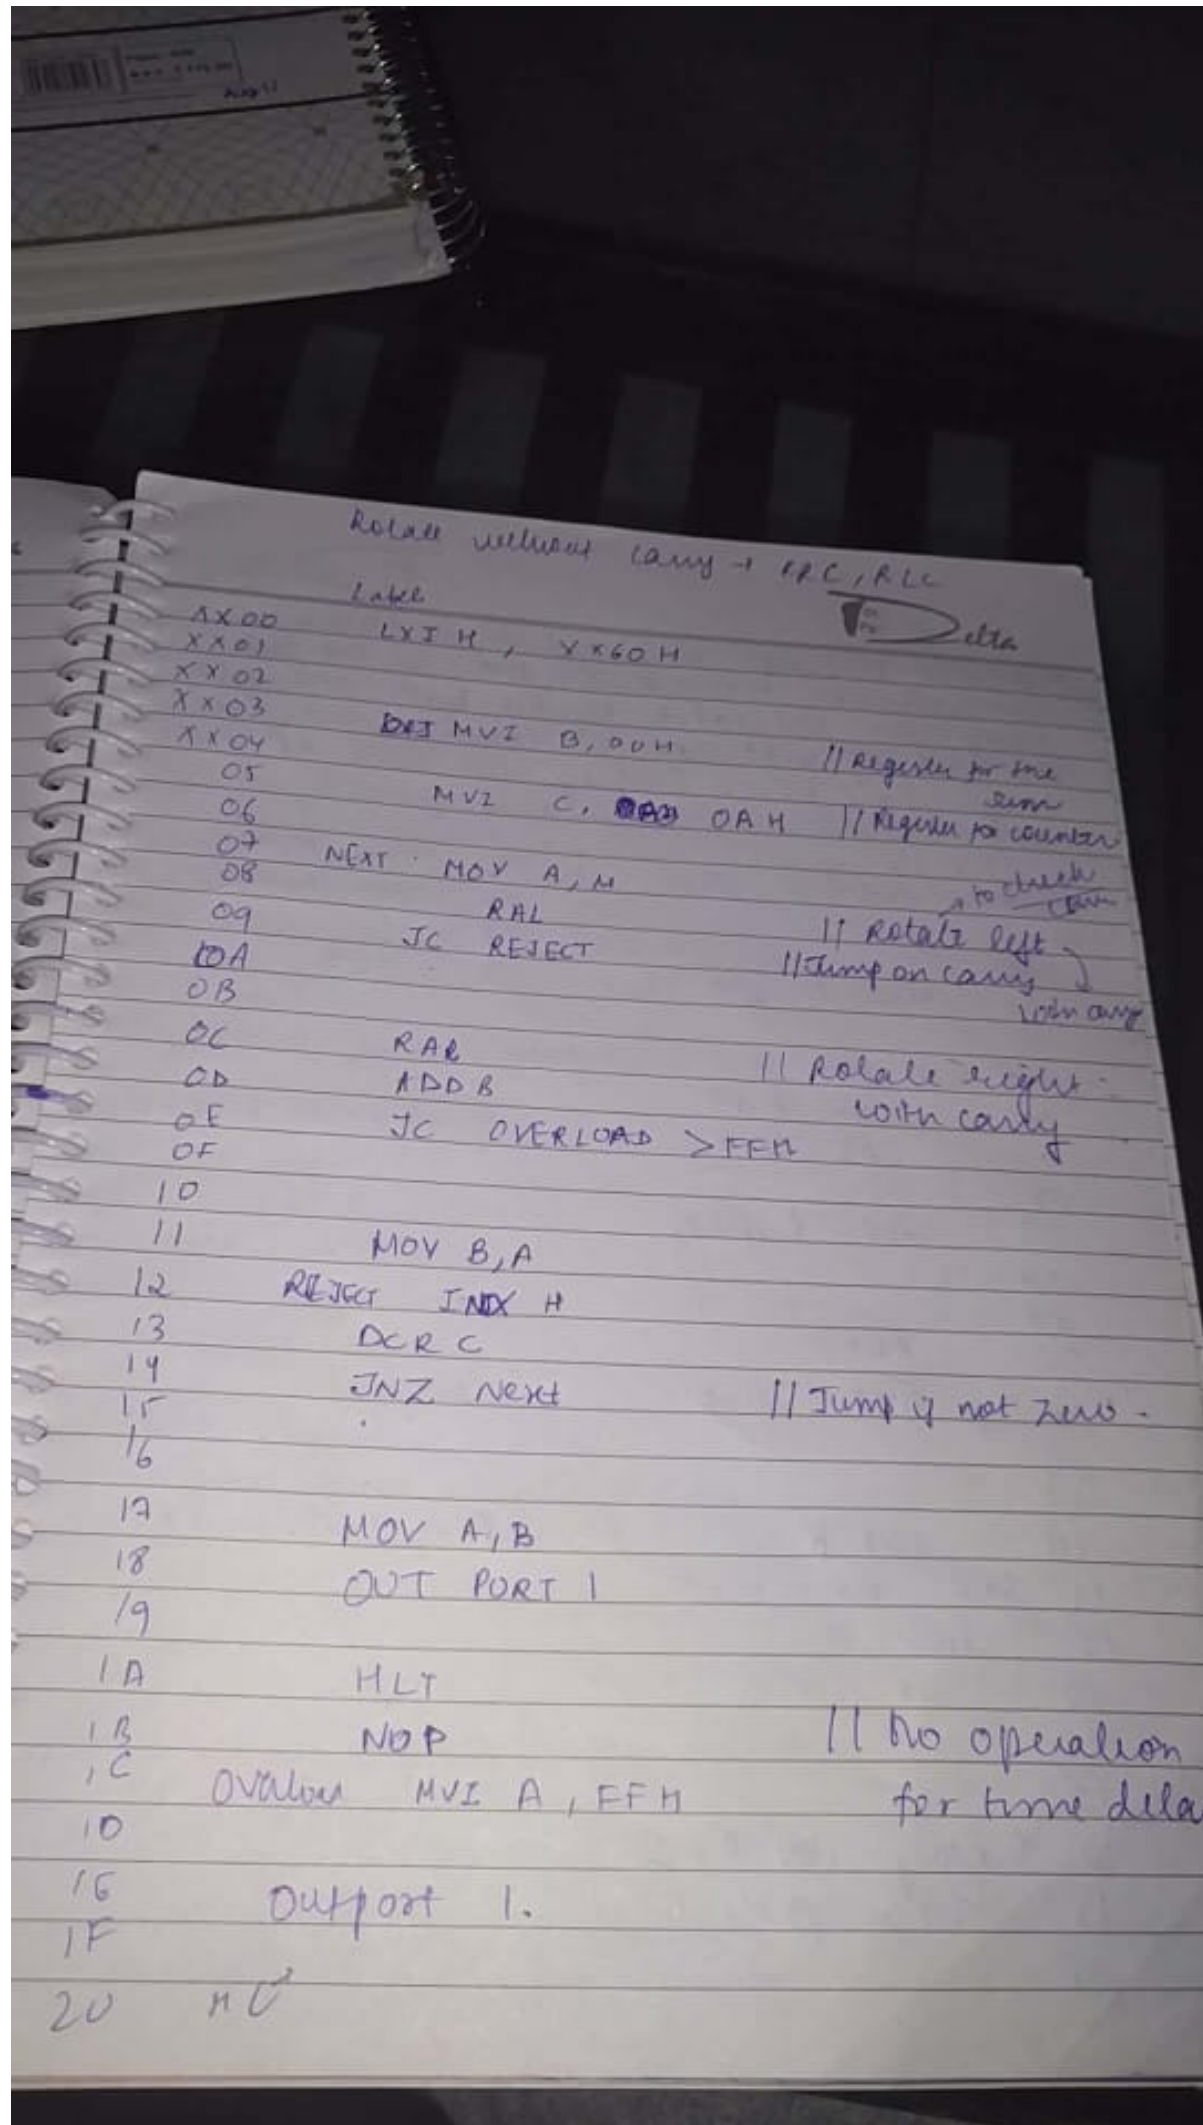 Rotate without carry → RRC, RLC
Label
Delta
XX00 LXI H, XX60H
XX01
XX02
XX03 MVI B, 00H // Register for the sum
XX04
05 MVI C, 0AH // Register for counter
06
07 NEXT: MOV A, M
08 RAL // Rotate left → to check carry
with carry
09 JC REJECT // Jump on carry
0A
0B
0C RAR // Rotate right with carry
0D ADD B
0E JC OVERLOAD >FFH
0F
10
11 MOV B,A
12 REJECT INX H
13 DCR C
14 JNZ Next // Jump if not zero.
15
16
17 MOV A,B
18 OUT PORT 1
19
1A HLT
1B NOP // No operation
1C MVI A, FFH for time dela
1D
1E Outport 1.
1F
20